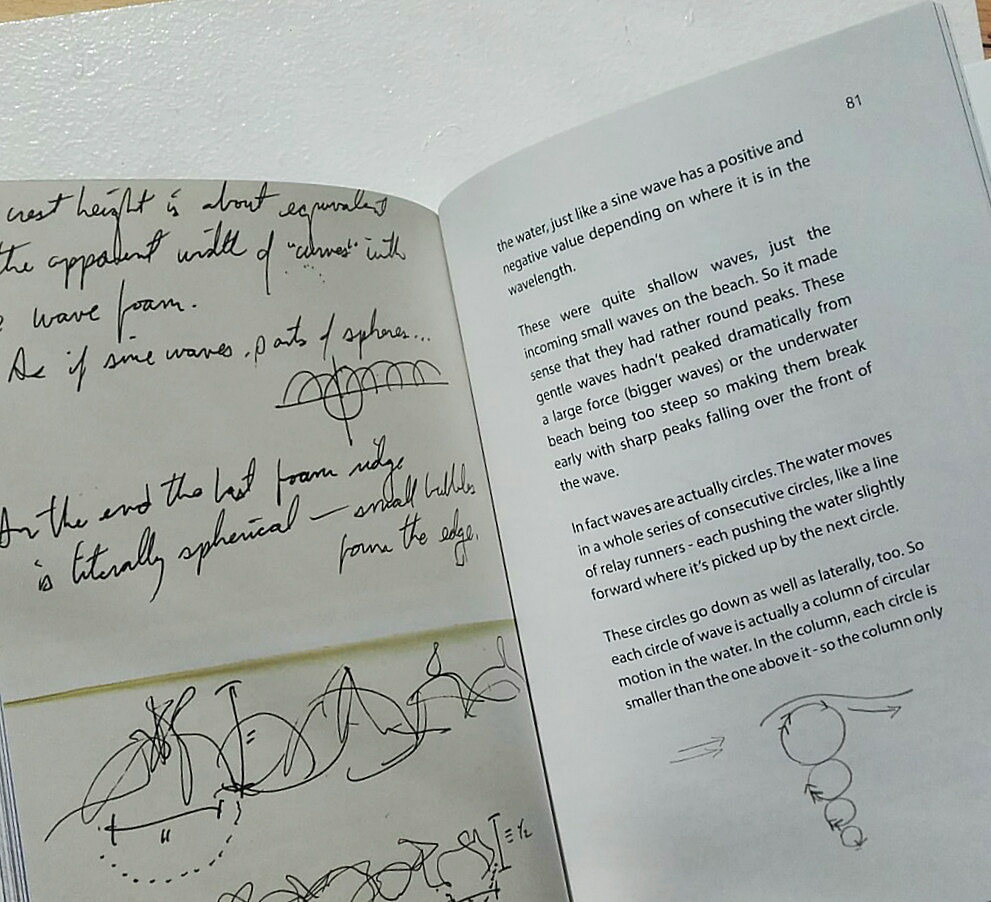 crest height is about equivalent
the apparent width of "curves" into
wave foam.
As if sine waves, parts of spheres...
In the end the last foam ridge
is literally spherical — small bubbles
form the edge.
=
"
≡ ½
81
the water, just like a sine wave has a positive and
negative value depending on where it is in the
wavelength.
These were quite shallow waves, just the
incoming small waves on the beach. So it made
sense that they had rather round peaks. These
gentle waves hadn't peaked dramatically from
a large force (bigger waves) or the underwater
beach being too steep so making them break
early with sharp peaks falling over the front of
the wave.
In fact waves are actually circles. The water moves
in a whole series of consecutive circles, like a line
of relay runners - each pushing the water slightly
forward where it's picked up by the next circle.
These circles go down as well as laterally, too. So
each circle of wave is actually a column of circular
motion in the water. In the column, each circle is
smaller than the one above it - so the column only